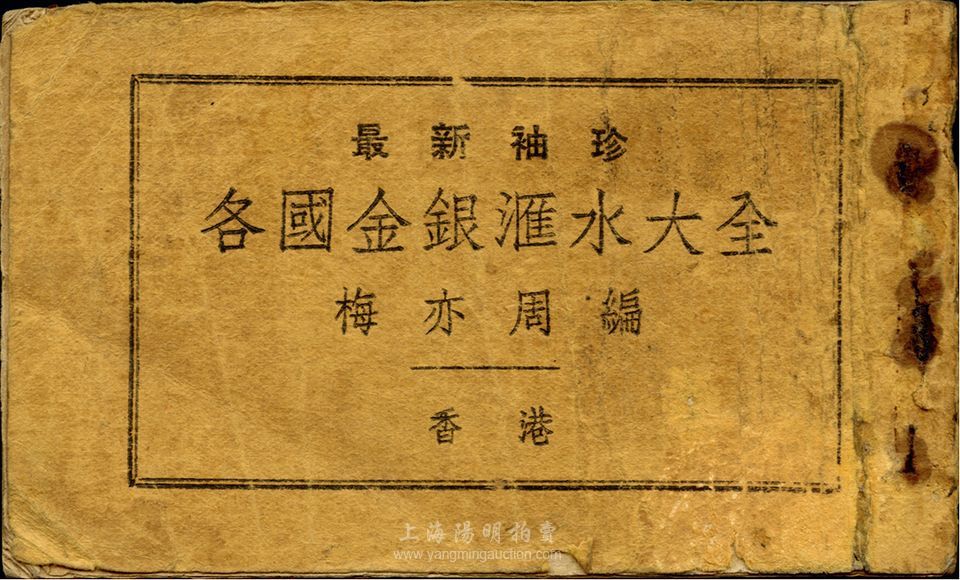 最新袖珍
各國金銀滙水大全
梅亦周編
香港
上海陽明拍賣
www.yangmingauction.com